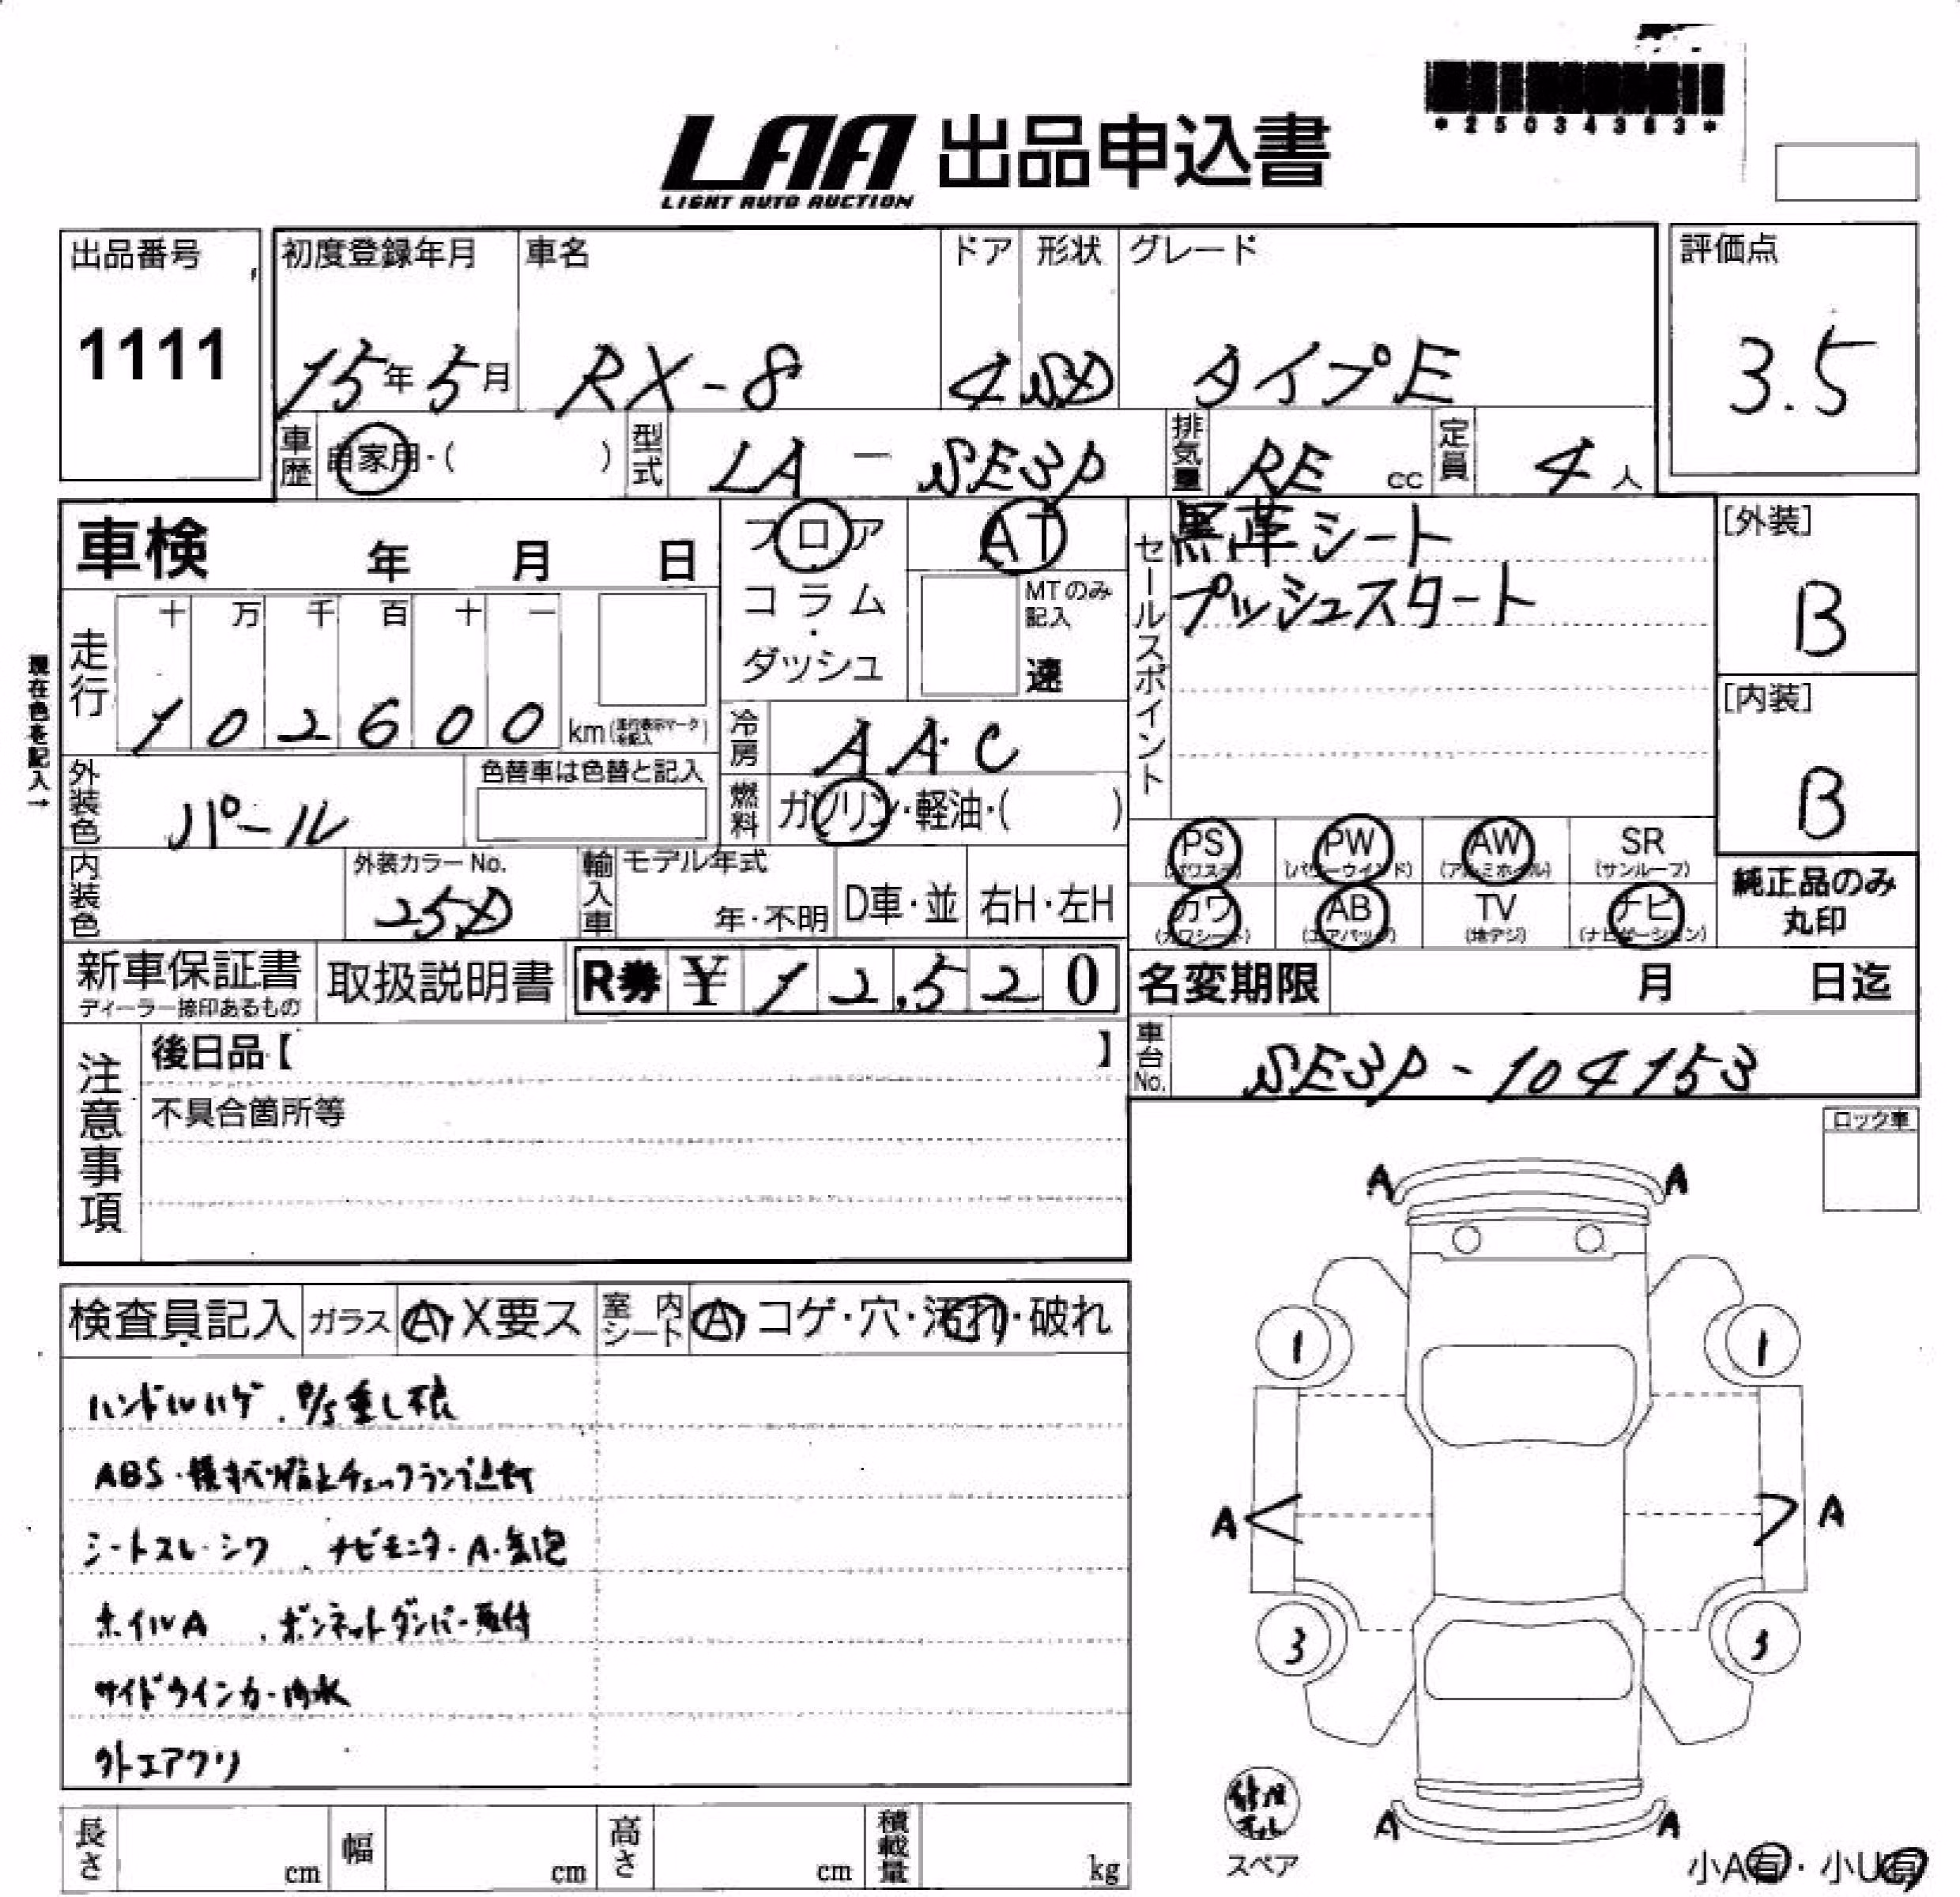 *25034383*
LAA 出品申込書
LIGHT AUTO AUCTION
出品番号
1111
初度登録年月
15年5月
車名
RX-8
ドア
4
形状
SD
グレード
タイプE
評価点
3.5
車歴
自家用・( )
型式
LA - SE3P
排気量
RE cc
定員
4人
車検 年 月 日
フロア
・
コラム
・
ダッシュ
AT
MTのみ記入
速
セールスポイント
黒革シート
プッシュスタート
[外装]
B
[内装]
B
現在色を記入→
走行
十 万 千 百 十 一
1 0 2 6 0 0 km(走行表示マークを記入)
冷房
AAC
燃料
ガソリン・軽油・( )
外装色
パール
色替車は色替と記入
内装色
外装カラーNo.
25D
輸入車
モデル年式
年・不明
D車・並
右H・左H
PS
(パワステ)
PW
(パワーウインド)
AW
(アルミホイル)
SR
(サンルーフ)
カワ
(カワシート)
AB
(エアバッグ)
TV
(地デジ)
ナビ
(ナビゲーション)
純正品のみ
丸印
新車保証書
ディーラー捺印あるもの
取扱説明書
R券 ¥ 12,520
名変期限 月 日迄
車台No.
SE3P-104153
注意事項
後日品【 】
不具合箇所等
ロック車
検査員記入 ガラス A・X要ス 室内シート A・コゲ・穴・汚れ・破れ
ハンドルハゲ . P/S重し不良
ABS・横すべり防止チェックランプ点灯
シートスレ・シワ . ナビモニター・A・気泡
ホイルA . ボンネットダンパー取付
サイドウインカー内水
外エアクリ
長さ cm 幅 cm 高さ cm 積載量 kg
A A
1 1
A A
3 3
A A
修理キット
スペア
小A有・小U有